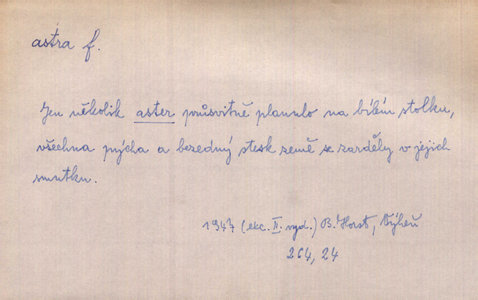 astra f.
Jen několik aster průsvitně planulo na bílém stolku,
všechna pýcha a bezedný stesk země se zarděly v jejich
smutku.
1947 (exc. II. vyd.) B. Horst, Výheň
264, 24